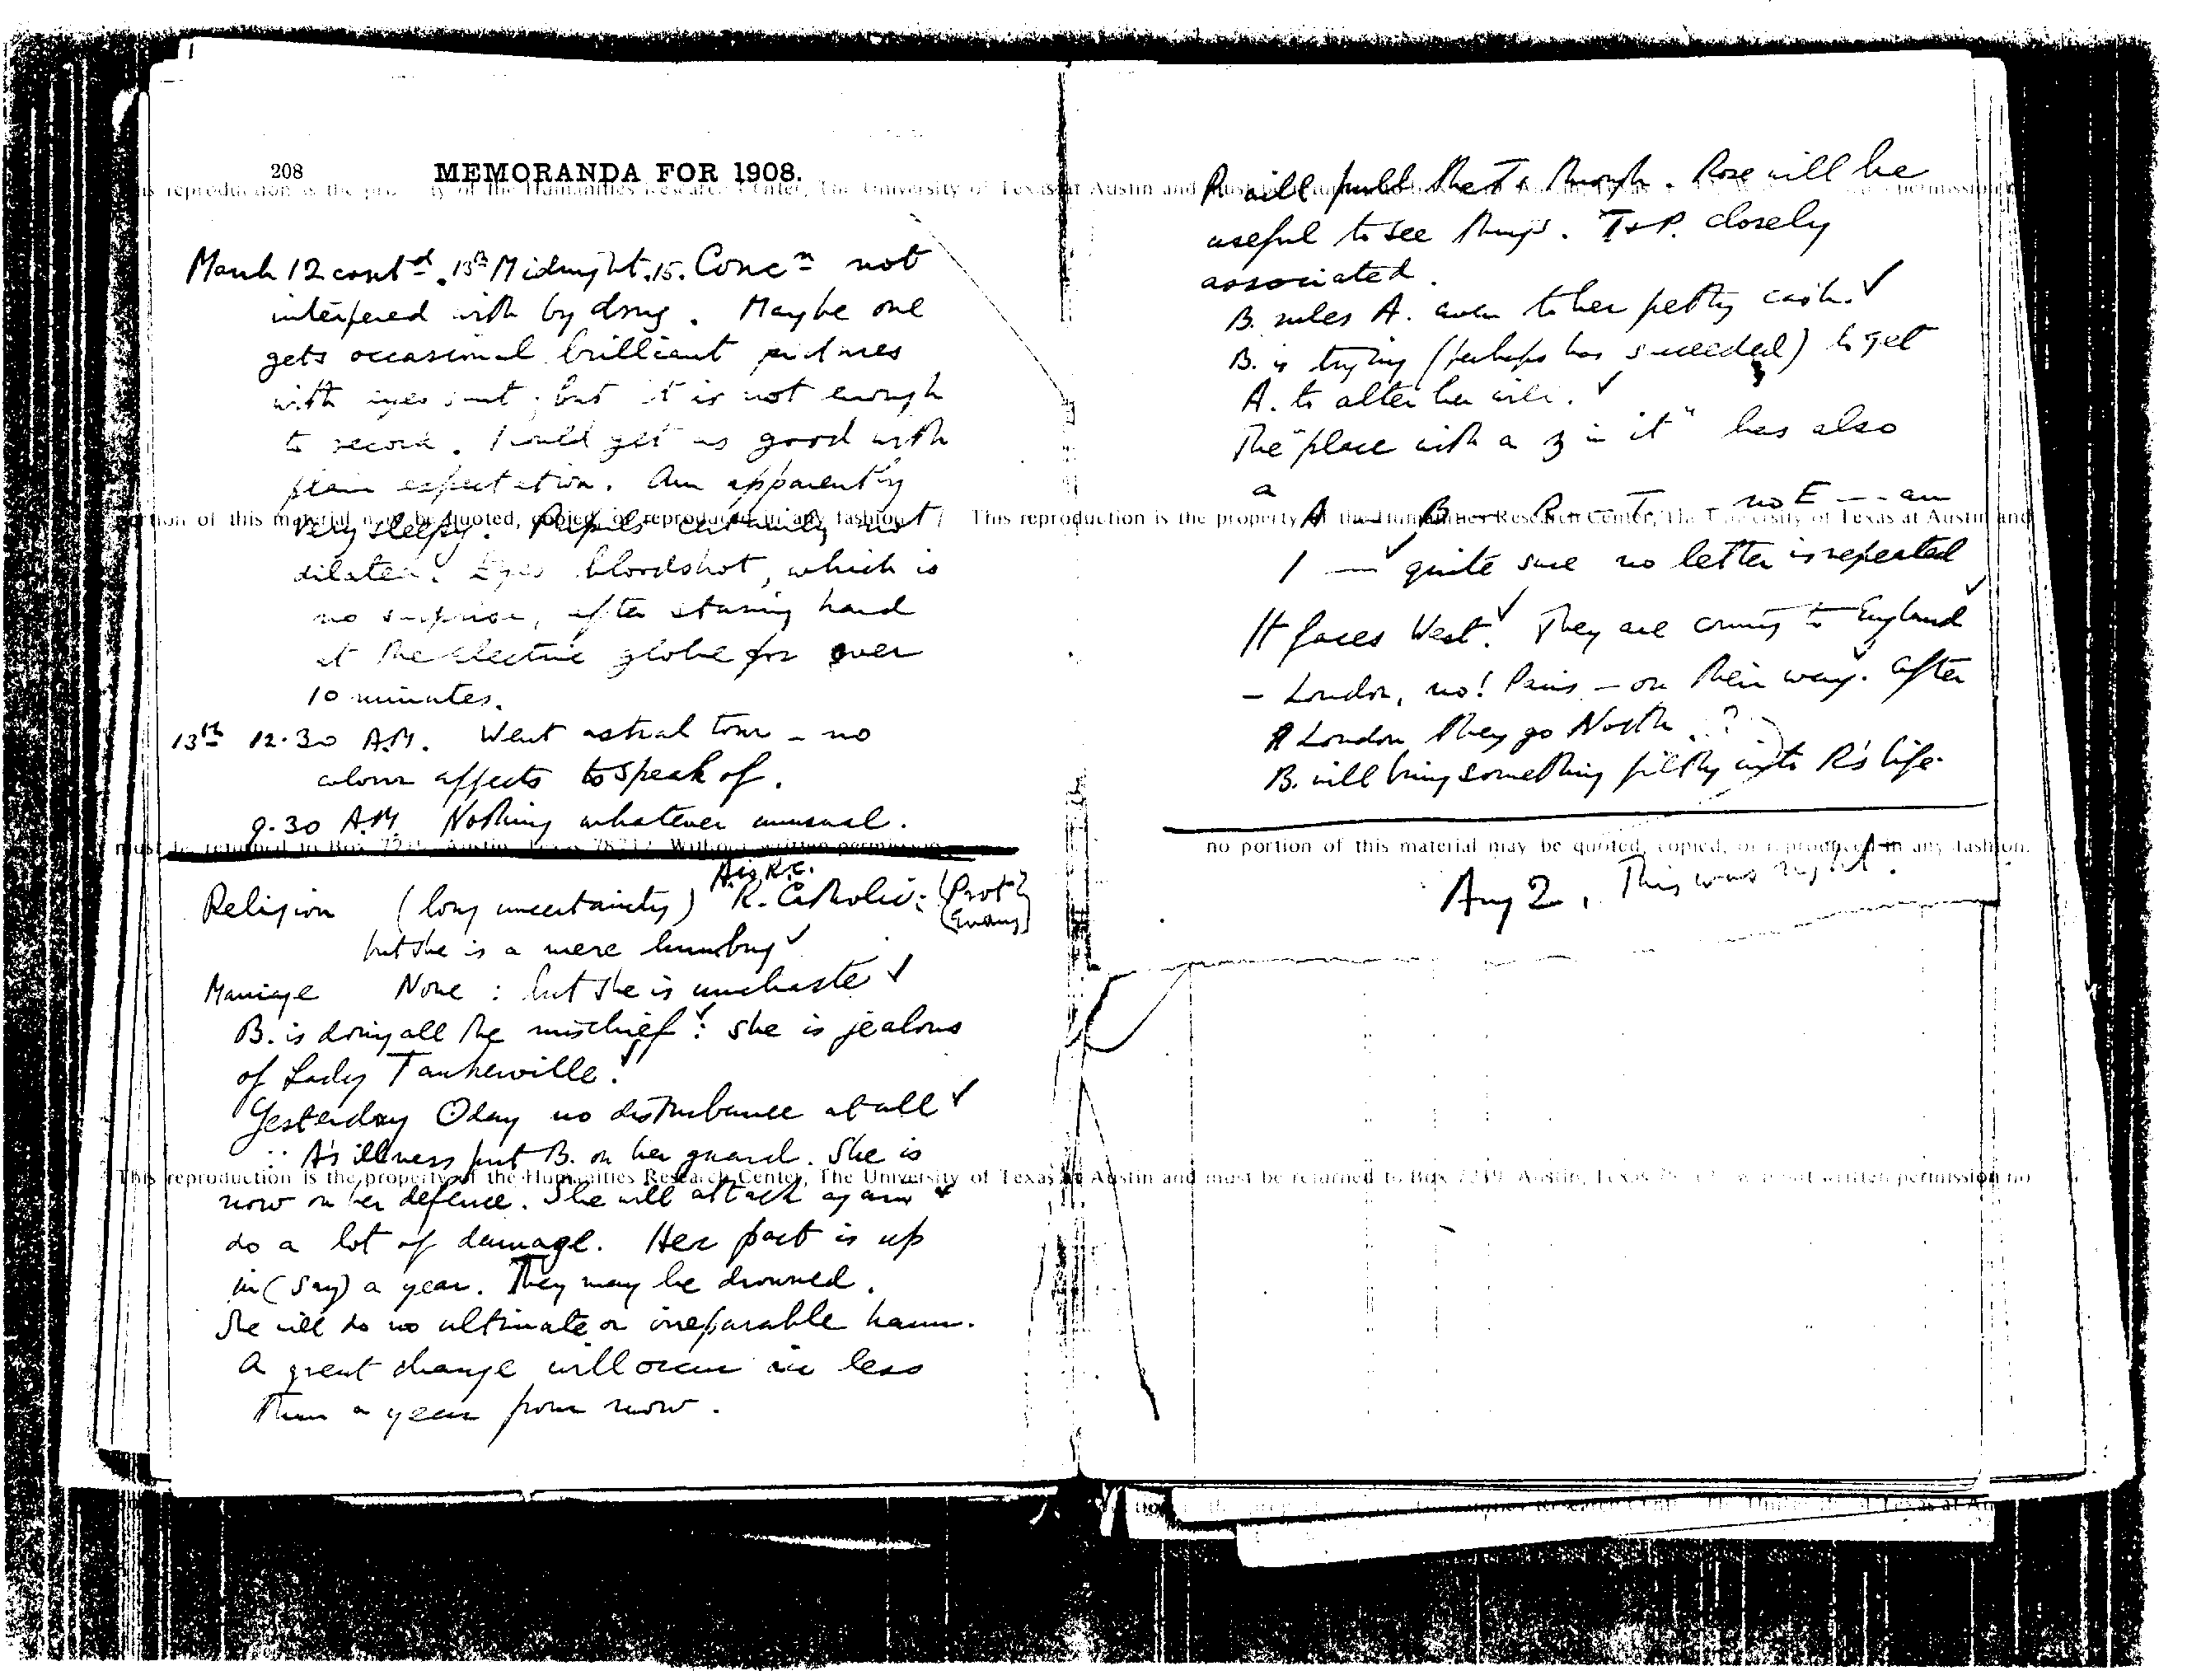 208 MEMORANDA FOR 1908.
March 12 contd. 13th Midnight.15. Concn not
interfered with by drug. Maybe one
gets occasional brilliant pictures
with eyes shut; but it is not enough
to record. I could get as good with
plain expectation. Am apparently
very sleepy. Pupils certainly not
dilated. Eyes bloodshot, which is
no surprise, after staring hard
at the electric globe for over
10 minutes.
13th 12.30 A.M. Went astral tour — no
colour affects to speak of.
9.30 A.M. Nothing whatever unusual.
A is R.C.
Religion (long uncertainty) R. Catholic: (Prot?
(Evang)
but she is a mere humbug ✓
Marriage None: but she is unchaste ✓
B. is doing all the mischief ✓: she is jealous
of Lady Tankerville. ✓
Yesterday Oday no disturbance at all ✓
∵ A's illness put B. on her guard. She is
now on her defence. She will attack again &
do a lot of damage. Her pact is up
in (say) a year. They may be drowned.
She will do no ultimate or irreparable harm.
A great change will occur in less
than a year from now.
P. will pull the T's through. Rose will be
useful to see things. T & P. closely
associated.
B. rules A. even to her petty cash. ✓
B. is trying (perhaps has succeeded) to get
A. to alter her will. ✓
The "place with a z in it" has also
a
A — B — R — T — no E — — an
I — ✓ quite sure no letter is repeated
It faces West. ✓ They are coming to England ✓
— London, no! Paris — on their way. ✓ After
London they go North. ?
B. will bring something filthy into R's life.
Aug 2. This was right.
This reproduction is the property of the Humanities Research Center, The University of Texas at Austin and must be returned to Box 7219, Austin, Texas 78712. Without written permission no
portion of this material may be quoted, copied, or reproduced in any fashion.